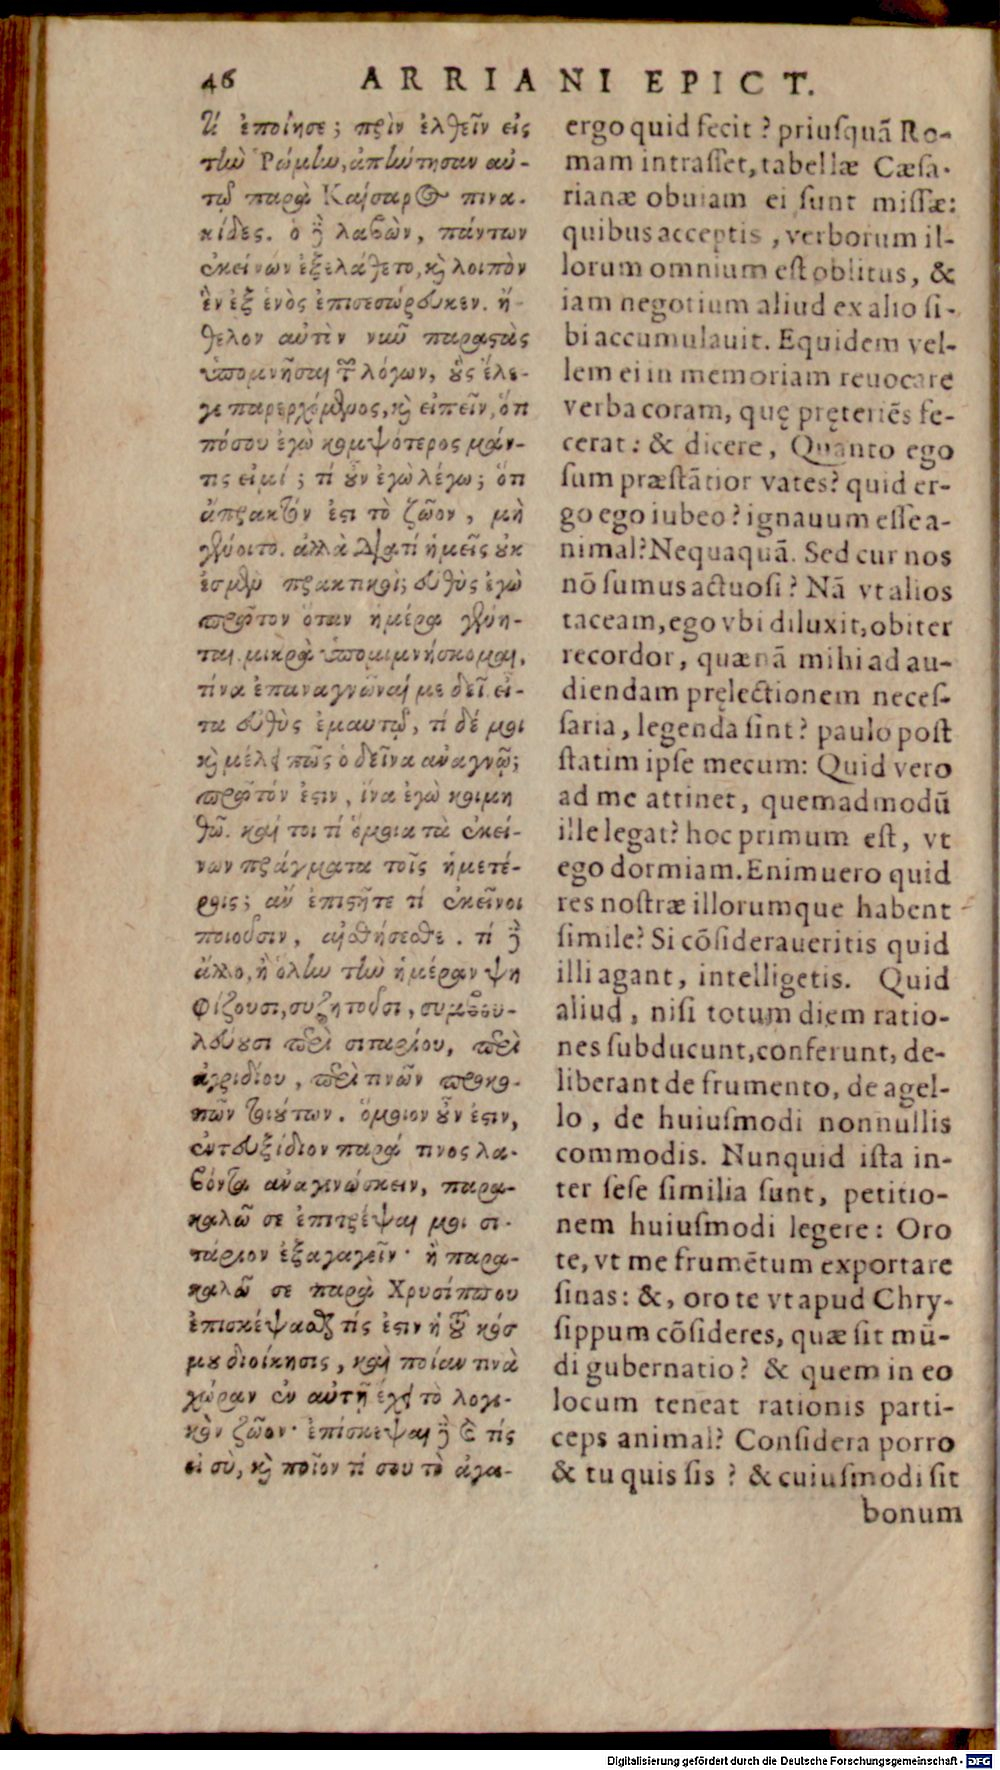 46 ARRIANI EPICT.
τί ἐποίησε; πρὶν ἐλθεῖν εἰς
τὴν Ῥώμην, ἀπήντησαν αὐ-
τῷ παρὰ Καίσαρος πινα-
κίδες. ὁ δὲ λαβὼν, πάντων
ἐκείνων ἐξελάθετο, καὶ λοιπὸν
ἓν ἐξ ἑνὸς ἐπισεσώρευκεν. ἤ-
θελον αὐτὸν νῦν παραστὰς
ὑπομνῆσαι τῶν λόγων, οὓς ἔλε-
γε παρερχόμενος, καὶ εἰπεῖν, ὅτι
πόσου ἐγὼ κομψότερος μάν-
τις εἰμί; τί οὖν ἐγὼ λέγω; ὅτι
ἄπρακτόν ἐστι τὸ ζῶον, μὴ
γένοιτο. ἀλλὰ Διατί ἡμεῖς οὐκ
ἐσμὲν πρακτικοὶ; εὐθὺς ἐγὼ
πρῶτον ὅταν ἡμέρα γένη-
ται, μικρὰ ὑπομιμνήσκομαι,
τίνα ἐπαναγνῶναί με δεῖ. εἶ-
τα εὐθὺς ἐμαυτῷ, τί δέ μοι
καὶ μέλει πῶς ὁ δεῖνα ἀναγνῷ;
πρῶτόν ἐστιν, ἵνα ἐγὼ κοιμη
θῶ. καί τοι τί ὅμοια τὰ ἐκεί-
νων πράγματα τοῖς ἡμετέ-
ροις; ἂν ἐπιστῆτε τί ἐκεῖνοι
ποιοῦσιν, αἰσθήσεσθε. τί δὲ
ἄλλο, ἢ ὅλην τὴν ἡμέραν ψη
φίζουσι, συζητοῦσι, συμβου-
λεύουσι περὶ σιταρίου, περὶ
ἀγριδίου, περὶ τινῶν προκο-
πῶν τοιούτων. ὅμοιον οὖν ἐστιν,
ἐντευξίδιον παρά τινος λα-
βόντα ἀναγινώσκειν, παρα-
καλῶ σε ἐπιτρέψαι μοι σι-
τάριον ἐξαγαγεῖν· ἢ παρα-
καλῶ σε παρὰ Χρυσίππου
ἐπισκέψασθαι τίς ἐστιν ἡ τοῦ κόσ
μου διοίκησις, καὶ ποίαν τινὰ
χώραν ἐν αὐτῇ ἔχει τὸ λογι-
κὸν ζῶον· ἐπίσκεψαι δὲ καὶ τίς
εἶ σὺ, καὶ ποῖον τί σου τὸ ἀγα-
ergo quid fecit? priusquā Ro-
mam intrasset, tabellæ Cæsa-
rianæ obuiam ei sunt missæ:
quibus acceptis, verborum il-
lorum omnium est oblitus, &
iam negotium aliud ex alio si-
bi accumulauit. Equidem vel-
lem ei in memoriam reuocare
verba coram, quę pręteriēs fe-
cerat: & dicere, Quanto ego
sum præstātior vates? quid er-
go ego iubeo? ignauum esse a-
nimal? Nequaquā. Sed cur nos
nō sumus actuosi? Nā vt alios
taceam, ego vbi diluxit, obiter
recordor, quænā mihi ad au-
diendam pręlectionem neces-
saria, legenda sint? paulo post
statim ipse mecum: Quid vero
ad me attinet, quemadmodū
ille legat? hoc primum est, vt
ego dormiam. Enimuero quid
res nostræ illorumque habent
simile? Si cōsideraueritis quid
illi agant, intelligetis. Quid
aliud, nisi totum diem ratio-
nes subducunt, conferunt, de-
liberant de frumento, de agel-
lo, de huiusmodi nonnullis
commodis. Nunquid ista in-
ter sese similia sunt, petitio-
nem huiusmodi legere: Oro
te, vt me frumētum exportare
sinas: &, oro te vt apud Chry-
sippum cōsideres, quæ sit mū-
di gubernatio? & quem in eo
locum teneat rationis parti-
ceps animal? Considera porro
& tu quis sis? & cuiusmodi sit
bonum
Digitalisierung gefördert durch die Deutsche Forschungsgemeinschaft - DFG